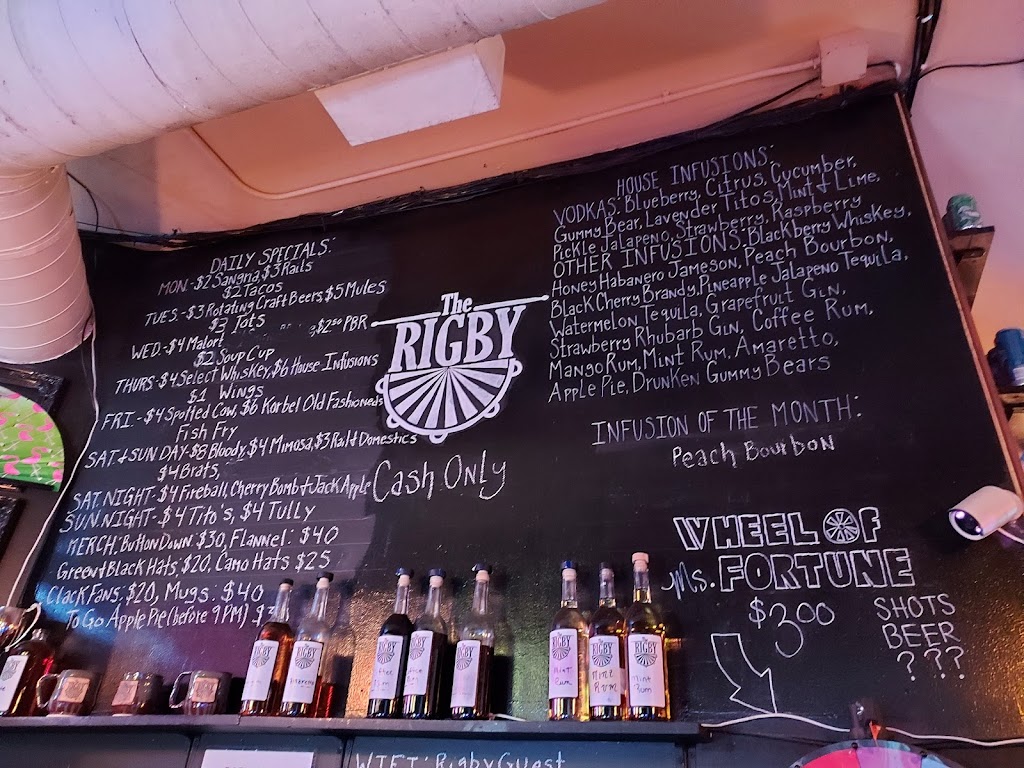 DAILY SPECIALS:
MON.-$2 Sangria, $3 Rails
$2 Tacos
TUES.-$3 Rotating Craft Beers, $5 Mules
$3 Tots
WED.-$4 Malort $2.50 PBR
$2 Soup Cup
THURS-$4 Select Whiskey, $6 House Infusions
$1 Wings
FRI-$4 Spotted Cow, $6 Korbel Old Fashioneds
Fish Fry
SAT.+SUN DAY-$8 Bloody, $4 Mimosa, $3 Rail+Domestics
$4 Brats,
SAT. NIGHT-$4 Fireball, Cherry Bomb+Jack Apple
SUN. NIGHT-$4 Tito's, $4 Tully
MERCH: Button Down: $30, Flannel: $40
Green+Black Hats, $20, Camo Hats $25
Clack Fans: $20, Mugs: $40
To Go Apple Pie (before 9PM)
The
RIGBY
Cash Only
HOUSE INFUSIONS:
VODKAS: Blueberry, Citrus, Cucumber,
Gummy Bear, Lavender Titos, Mint+Lime,
Pickle Jalapeno, Strawberry, Raspberry
OTHER INFUSIONS: Blackberry Whiskey,
Honey Habanero Jameson, Peach Bourbon,
Black Cherry Brandy, Pineapple Jalapeno Tequila,
Watermelon Tequila, Grapefruit Gin,
Strawberry Rhubarb Gin, Coffee Rum,
Mango Rum, Mint Rum, Amaretto,
Apple Pie, Drunken Gummy Bears
INFUSION OF THE MONTH:
Peach Bourbon
WHEEL OF
Ms. FORTUNE
$3.00
SHOTS
BEER
???
RIGBY
RIGBY
RIGBY
RIGBY
RIGBY
RIGBY
Mint
Rum
RIGBY
Mint
Rum
RIGBY
Mint
Rum
WIFI: RigbyGuest